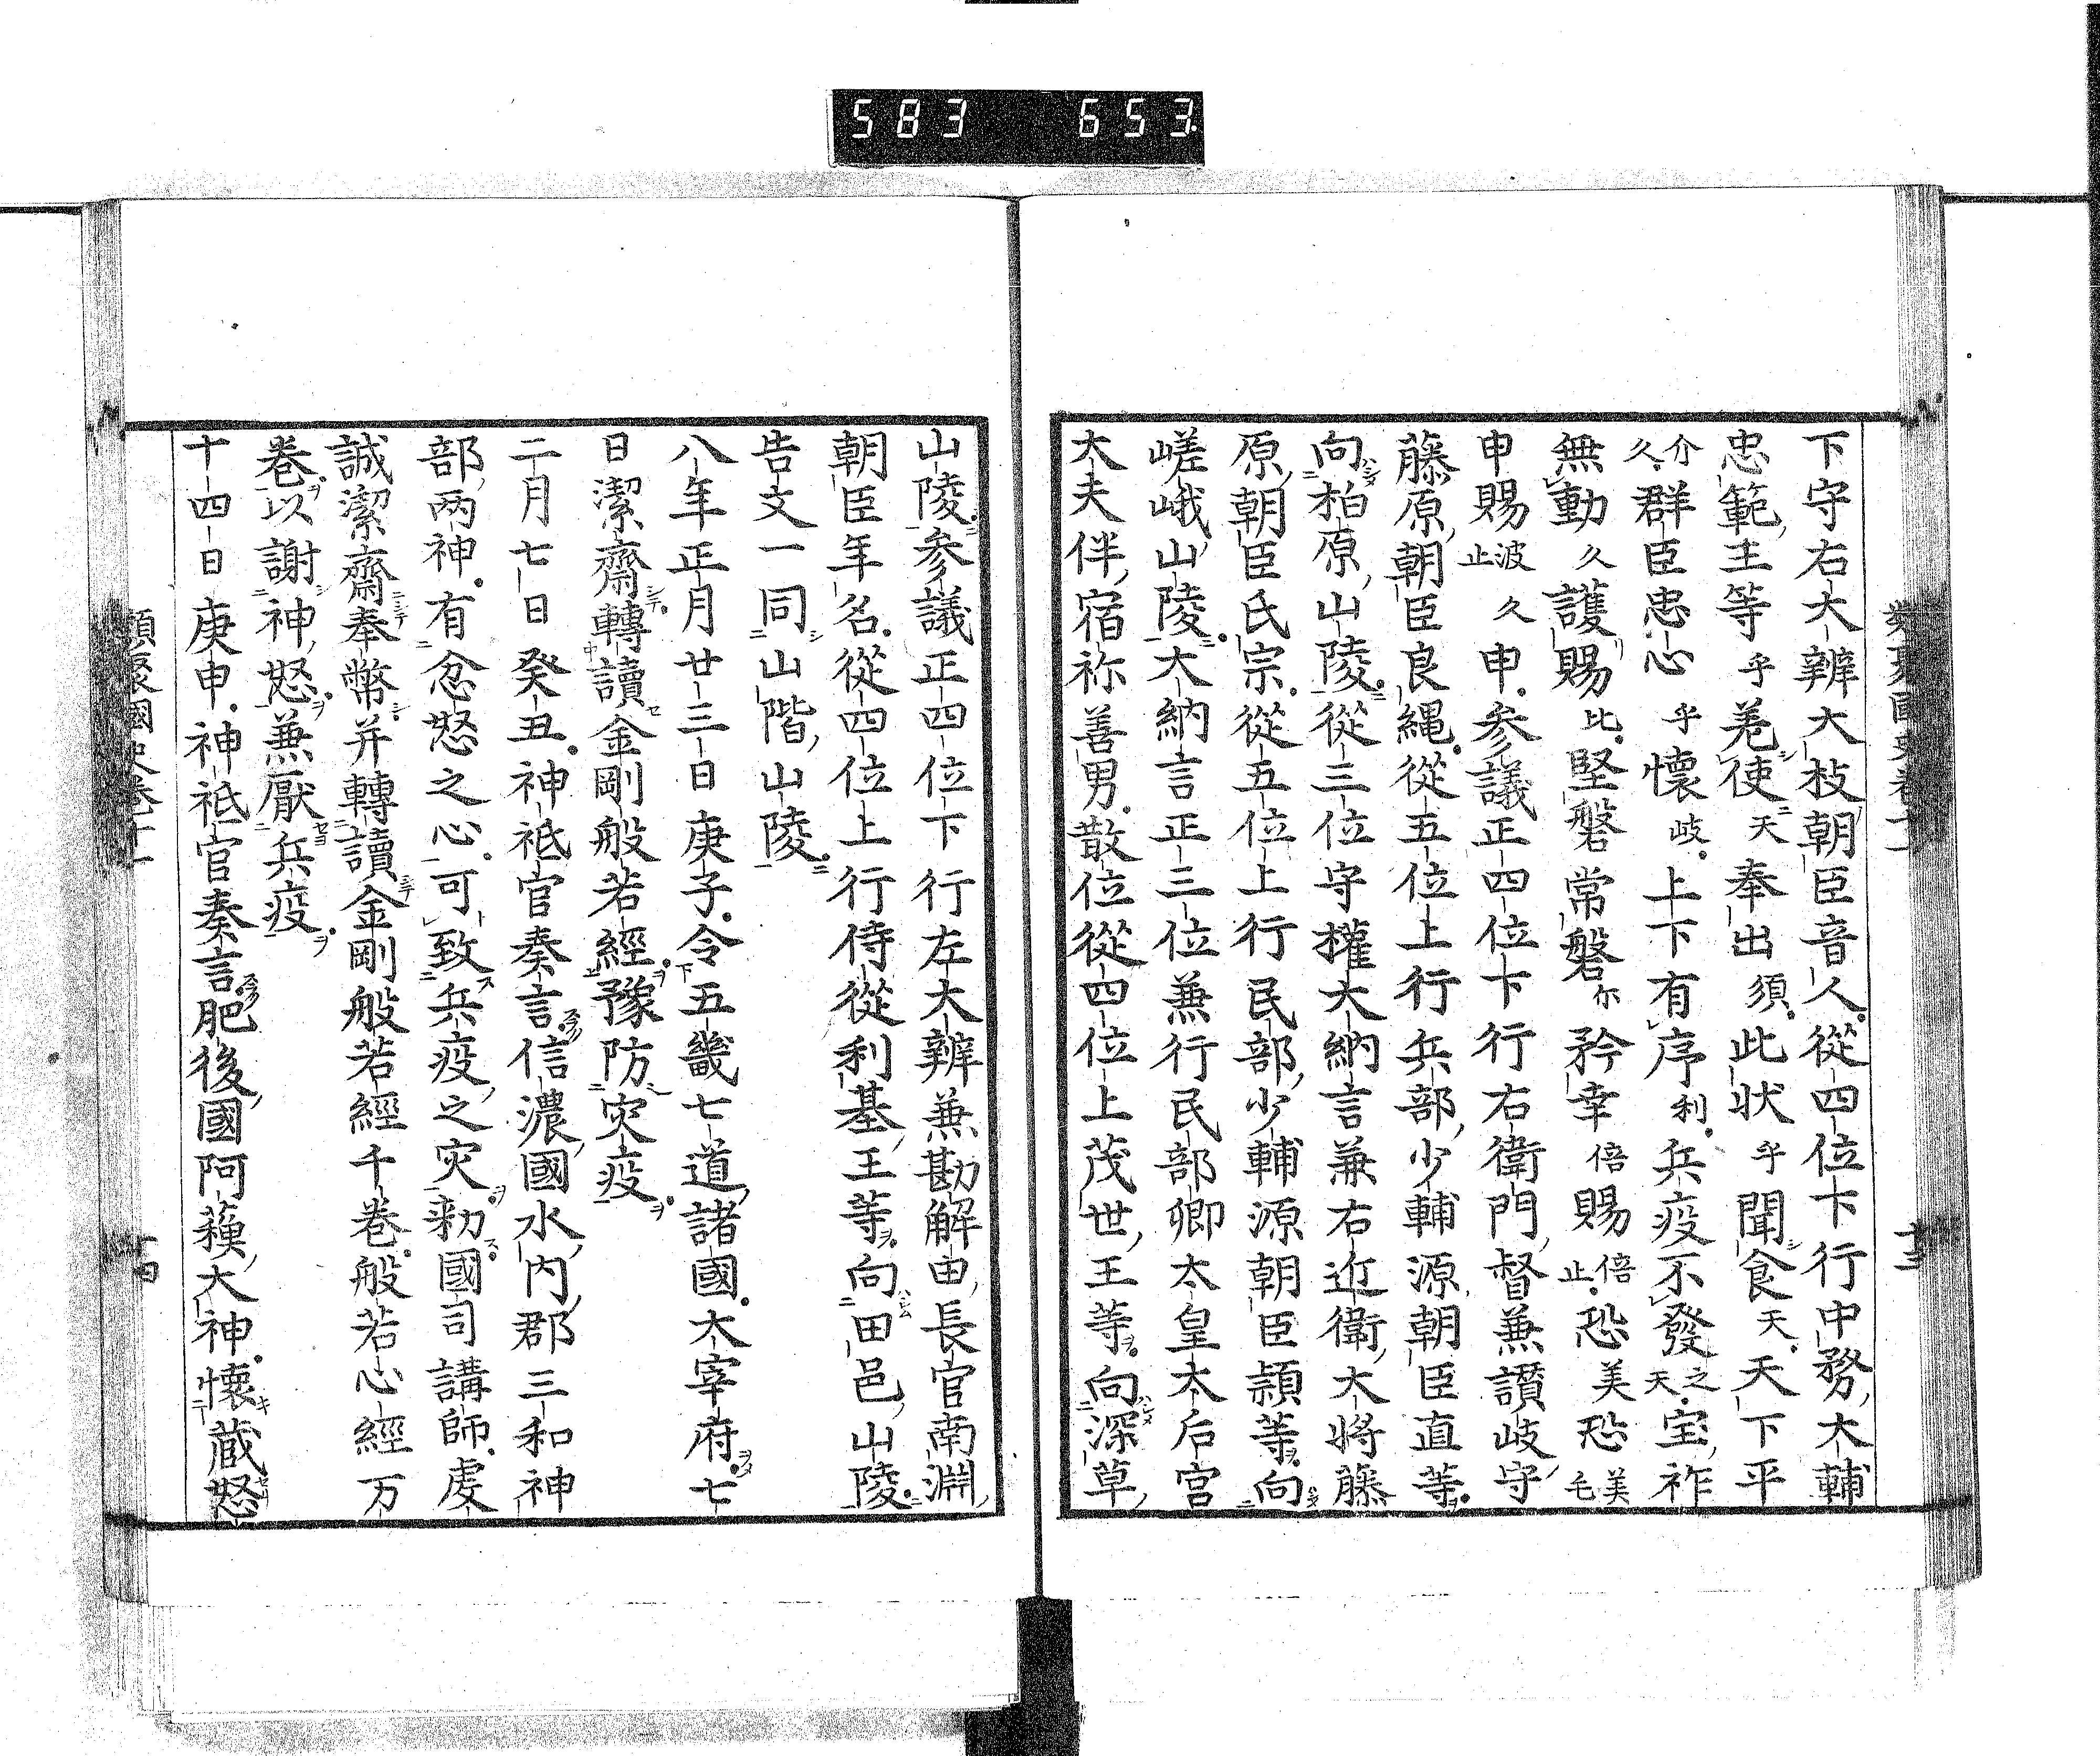 583 653.
類聚國史卷十一 十三
下守右大辨大枝朝臣音人從四位下行中務大輔
忠範王等乎差使天奉出須此状乎聞食天天下平
介久群臣忠心乎懐岐上下有序利兵疫不發之天宝祚
無動久護賜比堅磐常磐尓矜幸倍賜倍止恐美恐美毛
申賜波久止申参議正四位下行右衛門督兼讃岐守
藤原朝臣良縄從五位上行兵部少輔源朝臣直等
向柏原山陵從三位守權大納言兼右近衛大将藤
原朝臣氏宗從五位上行民部少輔源朝臣頴等向
嵯峨山陵大納言正三位兼行民部卿太皇太后宮
大夫伴宿祢善男散位從四位上茂世王等向深草
山陵参議正四位下行左大辨兼勘解由長官南淵
朝臣年名從四位上行侍從利基王等向田邑山陵
告文一同山階山陵
八年正月廿三日庚子令五畿七道諸國太宰府七
日潔齋轉讀金剛般若經豫防灾疫
二月七日癸丑神祇官奏言信濃國水内郡三和神
部兩神有忿怒之心可致兵疫之灾勑國司講師虔
誠潔齋奉幣并轉讀金剛般若經千巻般若心經万
巻以謝神怒兼厭兵疫
十四日庚申神祇官奏言肥後國阿蘓大神懐蔵怒
類聚國史卷十一 十四